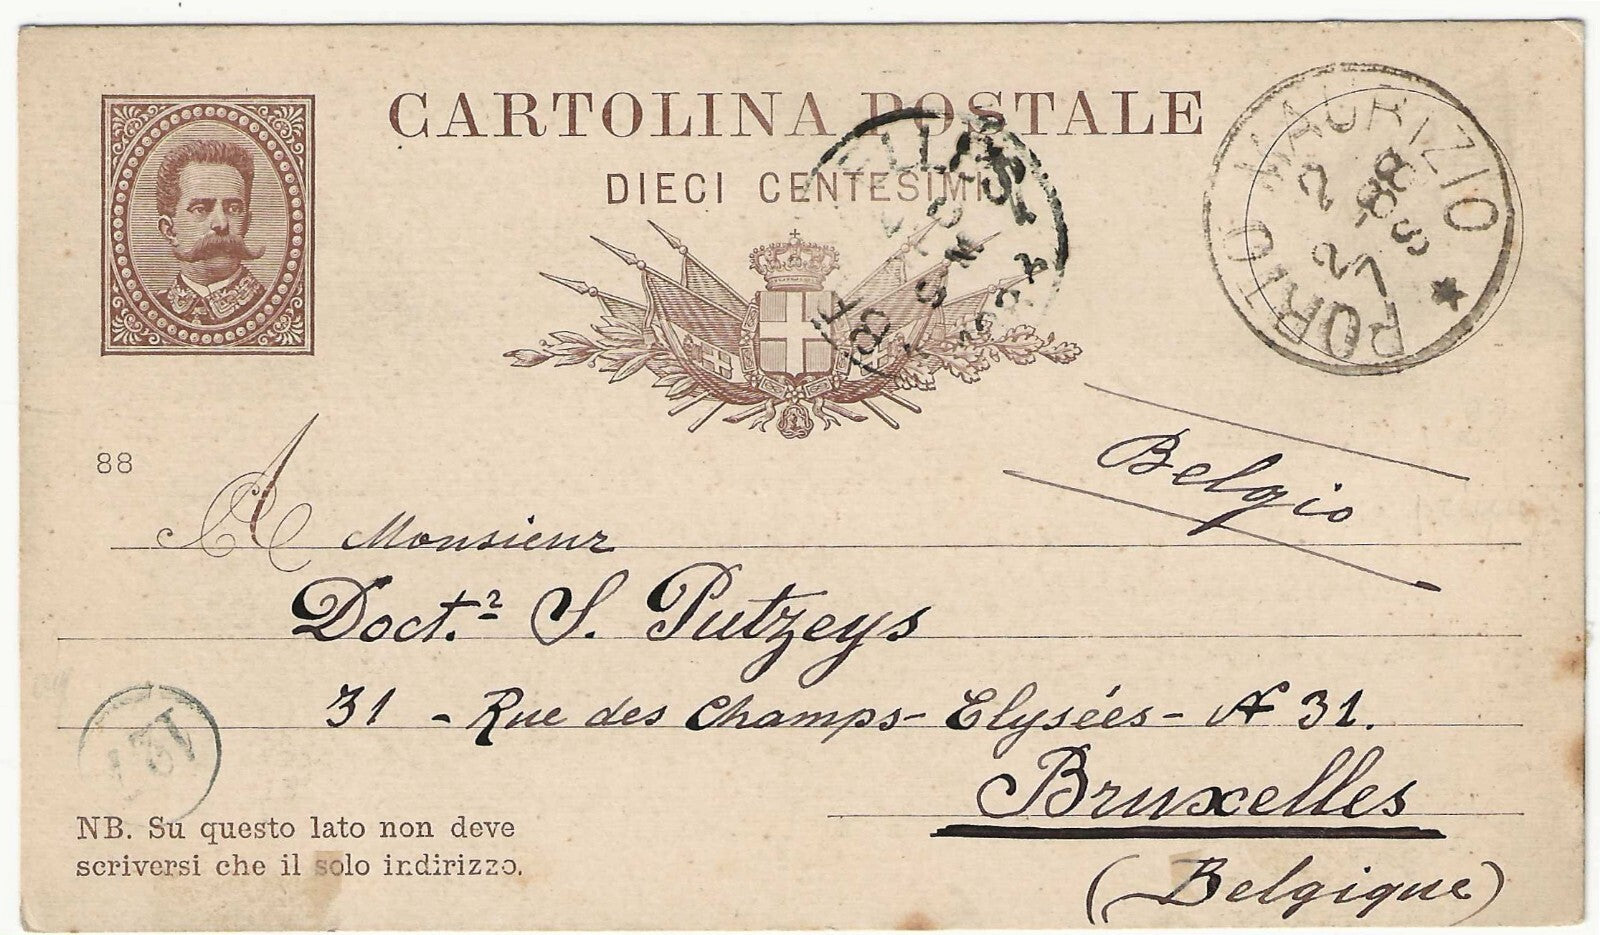 CARTOLINA POSTALE
DIECI CENTESIMI
PORTO MAURIZIO
2 - 88
27
88
Belgio
A Monsieur
Doct.² S. Putzeys
31 - Rue des Champs-Elysées - N 31.
Bruxelles
(Belgique)
NB. Su questo lato non deve
scriversi che il solo indirizzo.